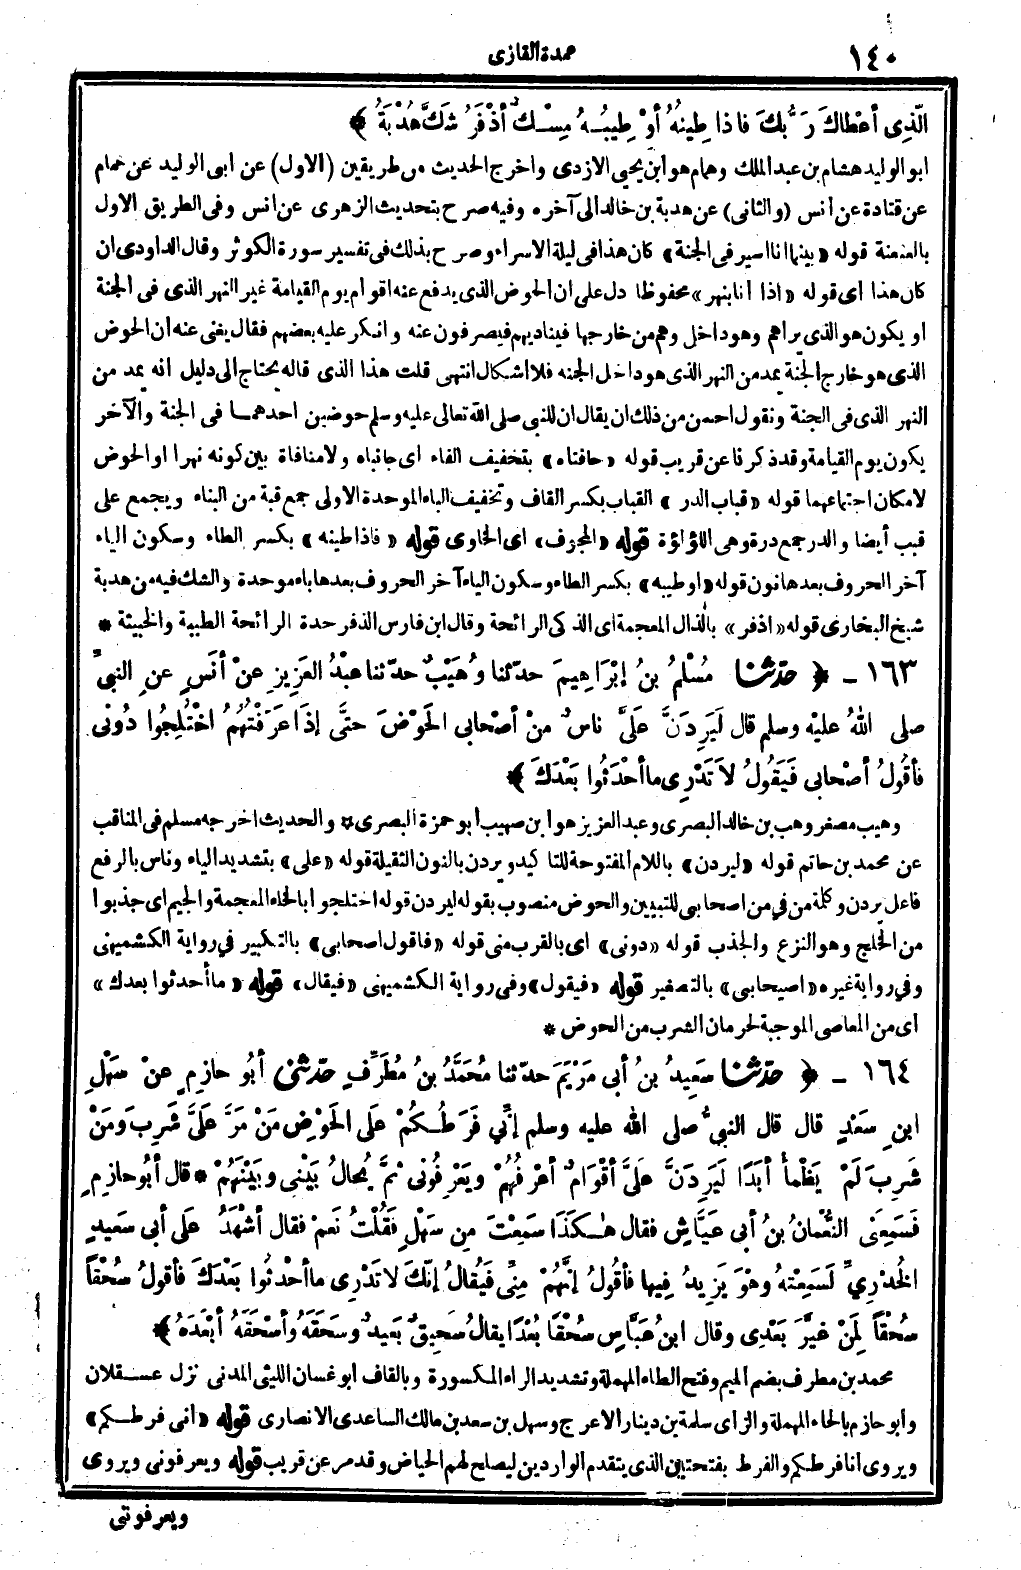 ١٤٠
عمدة القارى
الَّذِى أعْطاكَ رَبُّكَ فاذا طِينُهُ أوْ طِيبُهُ مِسْكٌ أذْفَرُ شَكَّ هُدْبَةُ ﴾
ابو الوليد هشام بن عبد الملك وهمام هو ابن يحيى الازدى واخرج الحديث من طريقين (الاول) عن ابى الوليد عن همام
عن قتادة عن أنس (والثانى) عن هدبة بن خالد الى آخره وفيه صرح بتحديث الزهرى عن انس وفى الطريق الاول
بالعنعنة قوله «بينما انا اسير فى الجنة» كان هذا فى ليلة الاسراء وصرح بذلك فى تفسير سورة الكوثر وقال الداودى ان
كان هذا اى قوله «اذا أنا بنهر» محفوظا دل على ان الحوض الذى يدفع عنه اقوام يوم القيامة غير النهر الذى فى الجنة
او يكون هو الذى يراهم وهو داخل وهم من خارجها فيناديهم فيصرفون عنه وانكر عليه بعضهم فقال يغنى عنه ان الحوض
الذى هو خارج الجنة يمد من النهر الذى هو داخل الجنه فلا اشكال انتهى قلت هذا الذى قاله يحتاج الى دليل انه يمد من
النهر الذى فى الجنة ونقول احسن من ذلك ان يقال ان للنبى صلى الله تعالى عليه وسلم حوضين احدهما فى الجنة والآخر
يكون يوم القيامة وقد ذكرنا عن قريب قوله «حافتاه» بتخفيف الفاء اى جانباه ولا منافاة بين كونه نهرا او الحوض
لامكان اجتماعهما قوله «قباب الدر» القباب بكسر القاف وتخفيف الباء الموحدة الاولى جمع قبة من البناء ويجمع على
قبب أيضا والدر جمع درة وهى اللؤلؤة قوله «المجوف» اى الخاوى قوله «فاذا طينه» بكسر الطاء وسكون الياء
آخر الحروف بعدها نون قوله «او طيبه» بكسر الطاء وسكون الياء آخر الحروف بعدها باء موحدة والشك فيه من هدبة
شيخ البخارى قوله «اذفر» بالذال المعجمة اى الذكى الرائحة وقال ابن فارس الذفر حدة الرائحة الطيبة والخبيثة *
١٦٣ - ﴿ حدّثنا مُسْلِمُ بنُ إبْرَاهِيمَ حدّثنا وُهَيْبٌ حدّثنا عبْدُ العَزِيزِ عنْ أنَسٍ عنِ النبيِّ
صلى اللهُ عليْه وسلم قال لَيَرِدَنَّ عَلَىَّ ناسٌ منْ أصْحابى الحَوْضَ حتَّى إذَا عَرَفْتُهُمُ اخْتُلِجُوا دُونى
فأقُولُ أصْحابى فَيَقُولُ لاَ تَدْرِى ما أحْدَثُوا بَعْدَكَ ﴾
وهيب مصغر وهب بن خالد البصرى وعبد العزيز هو ابن صهيب أبو حمزة البصرى * والحديث اخرجه مسلم فى المناقب
عن محمد بن حاتم قوله «ليردن» باللام المفتوحة للتاكيد ويردن بالنون الثقيلة قوله «على» بتشديد الياء وناس بالرفع
فاعل يردن وكلمة من في من اصحابى للتبيين والحوض منصوب بقوله ليردن قوله اختلجوا بالخاء المعجمة والجيم اى جذبوا
من الخلج وهو النزع والجذب قوله «دونى» اى بالقرب منى قوله «فاقول اصحابى» بالتكبير في رواية الكشميهنى
وفي رواية غيره «اصيحابي» بالتصغير قوله «فيقول» وفى رواية الكشميهنى «فيقال» قوله «ما أحدثوا بعدك»
اى من المعاصى الموجبة لحرمان الشرب من الحوض *
١٦٤ - ﴿ حدّثنا سَعِيدُ بنُ أبى مَرْيَمَ حدّثنا مُحَمَّدُ بنُ مُطَرِّفٍ حدّثنى أبُو حازِمٍ عنْ سَهْلِ
ابنِ سَعْدٍ قال قال النبيُّ صلى الله عليه وسلم إنِّي فَرَطُكُمْ عَلَى الحَوْضِ مَنْ مَرَّ عَلَىَّ شَرِبَ ومَنْ
شَرِبَ لَمْ يَظْمأْ أبَدًا لَيَرِدَنَّ عَلَىَّ أقْوَامٌ أعْرِفُهُمْ ويَعْرِفُونى ثمَّ يُحالُ بَيْنى وبَيْنَهُمْ * قال أبُو حازِمٍ
فَسَمِعَنى النُّعْمانُ بنُ أبى عيَّاشٍ فقال هٰكَذَا سَمِعْتَ مِن سَهْلٍ فَقُلْتُ نَعَمْ فقال أشْهَدُ عَلَى أبى سَعيدٍ
الخُدْرِيِّ لَسَمِعْتهُ وهْوَ يَزِيدُ فِيها فأقُولُ إنَّهُمْ مِنِّى فَيُقالُ إنَّكَ لا تَدْرِى ما أحْدثُوا بَعْدَكَ فأقولُ سُحْقاً
سُحْقاً لِمَنْ غيَّرَ بَعْدِى وقال ابنُ عَبَّاسٍ سُحْقًا بُعْدًا يقالُ سَحِيقٌ بَعِيدٌ وسَحَقَهُ وأسْحَقَهُ أبْعَدَهُ ﴾
محمد بن مطرف بضم الميم وفتح الطاء المهملة وتشديد الراء المكسورة وبالقاف أبو غسان الليثى المدنى نزل عسقلان
وأبو حازم بالحاء المهملة والزاى سلمة بن دينار الاعرج وسهل بن سعد بن مالك الساعدى الانصارى قوله «انى فرطكم»
ويروى انا فرطكم والفرط بفتحتين الذى يتقدم الواردين ليصلح لهم الحياض وقد مر عن قريب قوله ويعرفونى ويروى
ويعرفوننى